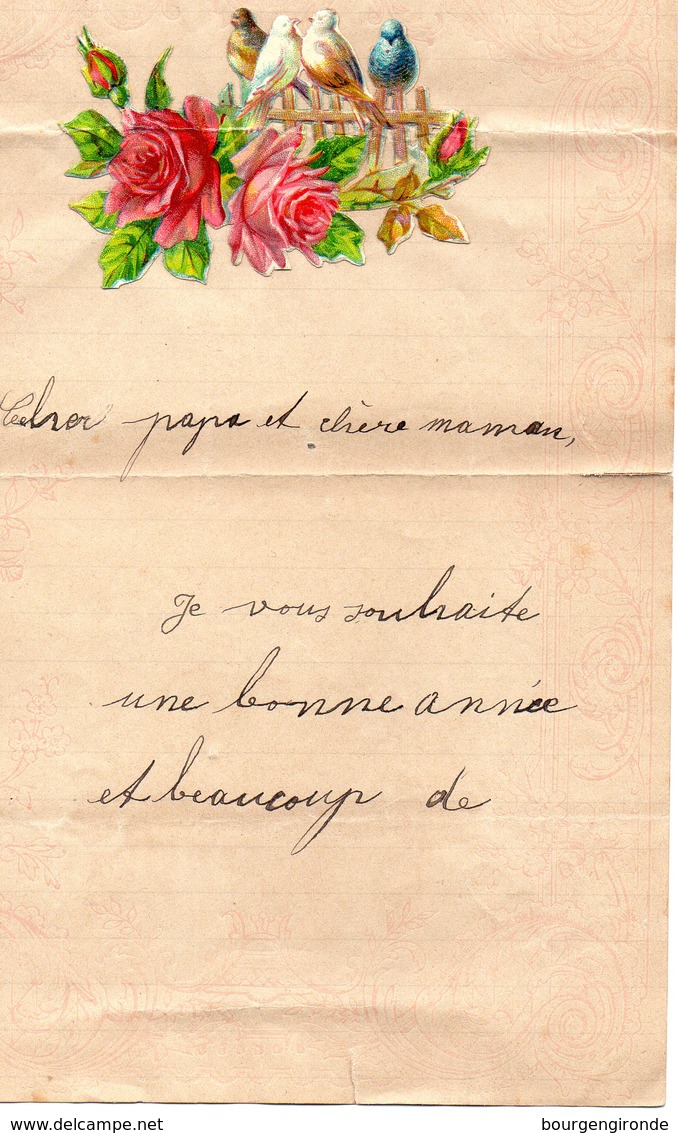 Cher papa et chère maman,
Je vous souhaite
une bonne année
et beaucoup de
www.delcampe.net
bourgengironde